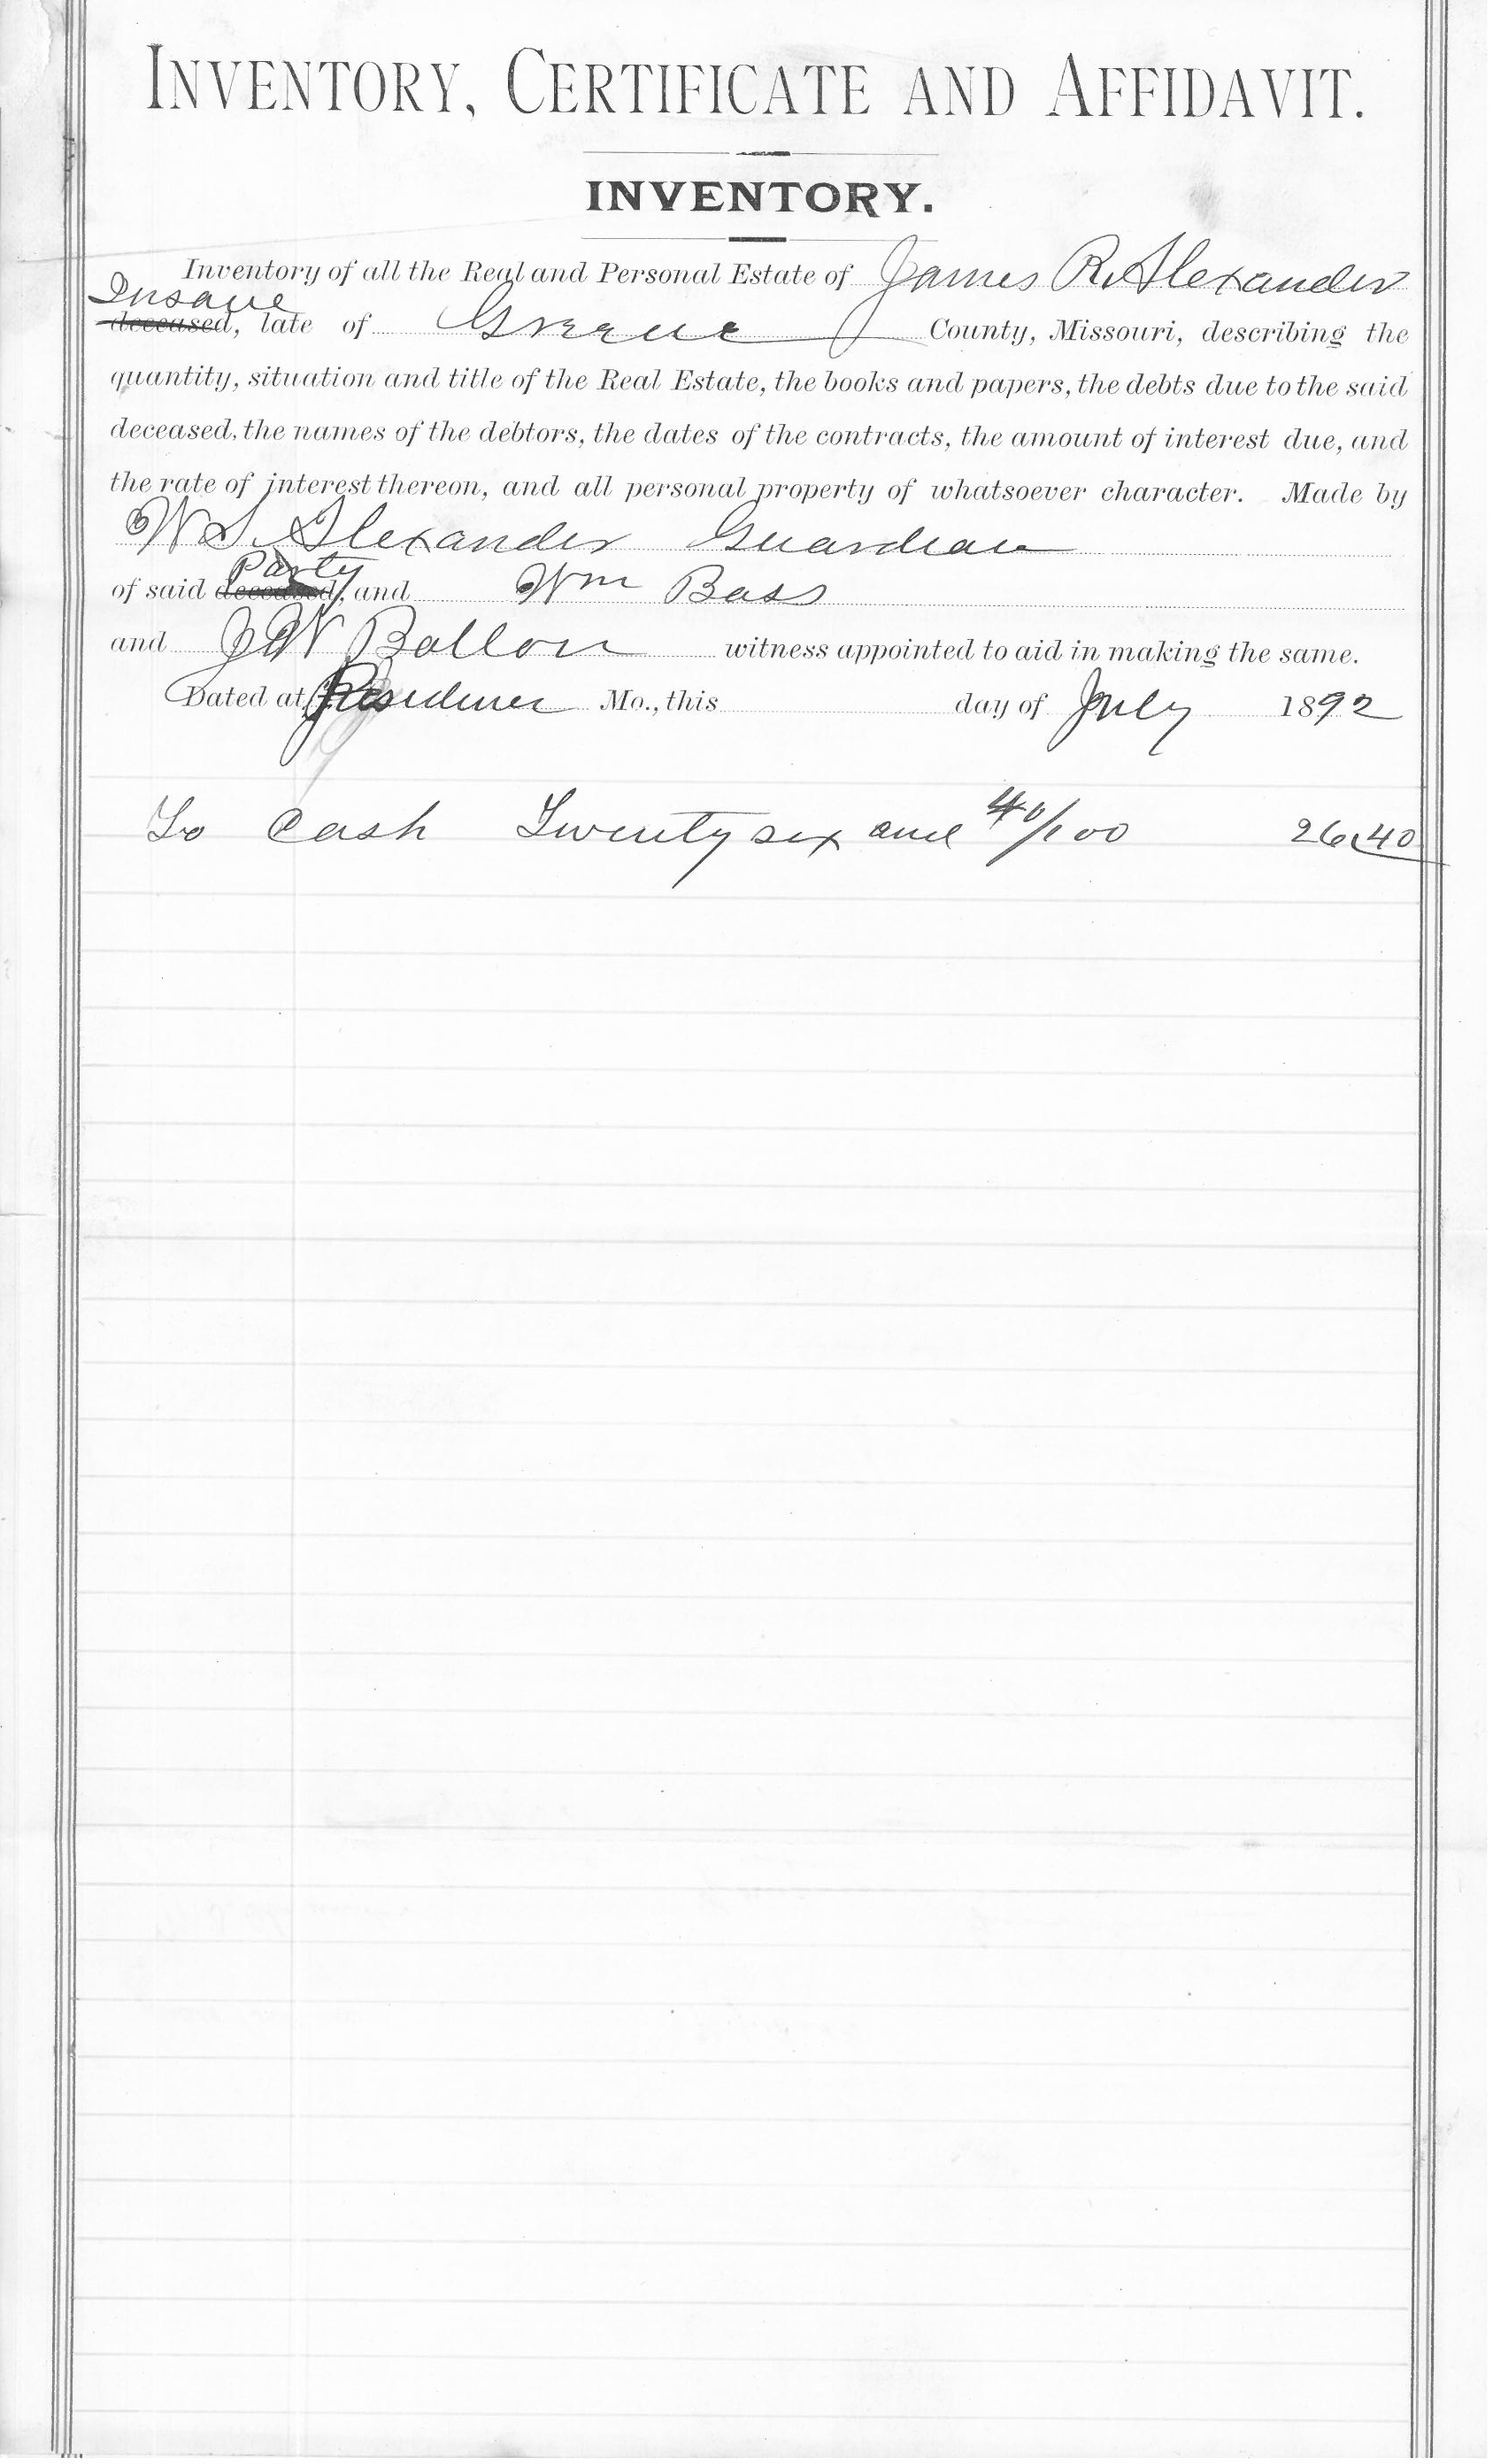 INVENTORY, CERTIFICATE AND AFFIDAVIT.
INVENTORY.
Inventory of all the Real and Personal Estate of James R. Alexander
Insane
deceased, late of Greene County, Missouri, describing the
quantity, situation and title of the Real Estate, the books and papers, the debts due to the said
deceased, the names of the debtors, the dates of the contracts, the amount of interest due, and
the rate of interest thereon, and all personal property of whatsoever character. Made by
W. S. Alexander Guardian
Party
of said deceased, and Wm Bass
and J W witness appointed to aid in making the same.
Dated at Residence Mo., this day of July 1892
To Cash Twenty six and 40/100 26.40